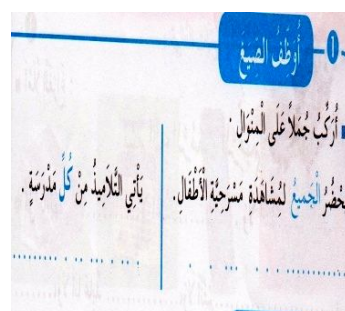 1 أُوَظِّفُ الصِّيَغَ
أُرَكِّبُ جُمَلاً عَلَى الْمِنْوَالِ :
يَحْضُرُ الْجَمِيعُ لِمُشَاهَدَةِ مَسْرَحِيَّةِ الْأَطْفَالِ .
يَأْتِي التَّلَامِيذُ مِنْ كُلِّ مَدْرَسَةٍ .